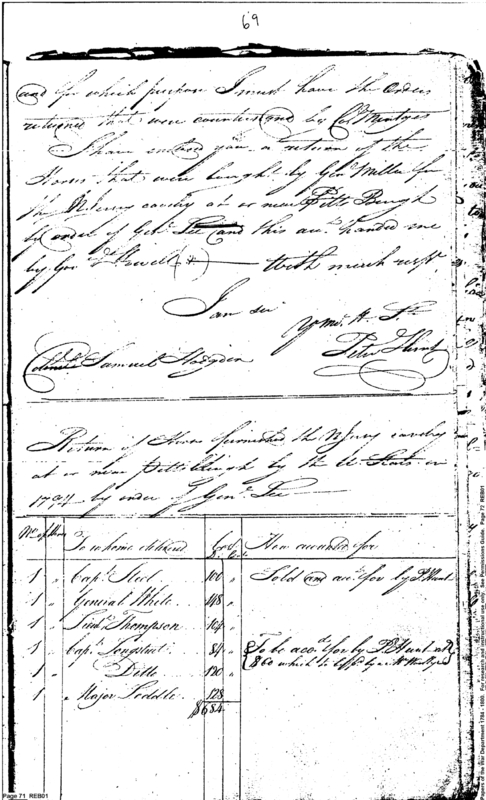 69
and for which purpose I must have the Orders
returned that were countersigned by Col
I have enclosed you a return of the
Horses that were bought by Genl Miller for
the N Jersey cavalry at or near Pitts Burgh
by order of Genl Lee and this acct handed me
by Gov Howell (+) With much respt.
I am sir
Your mo. H. St.
Peter Hunt
Colonel Samuel Hodgdon
Return of Horses furnished the N Jersey cavalry
at or near Pittsburgh by the U States in
1794 by order of Genl Lee
No of Horses
To whome delivered
How accounted for
1 " Capt. Steel 100 " Sold and acct for by P Hunt
1 " General White 148 "
1 " Thompson 104 "
1 " Capt. 84 " To be accd for by P. Hunt at
1 " Ditto 120 " $60 which is
1 " Major 128
$684
Page 71 REB01
Papers of the War Department 1784 - 1800. For research and instructional use only. See Permissions Guide. Page 72 REB01